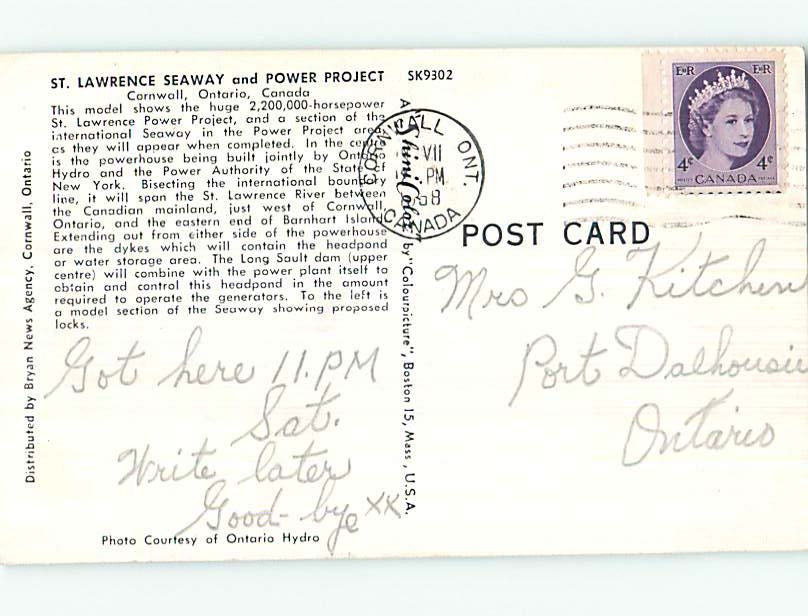 ST. LAWRENCE SEAWAY and POWER PROJECT SK9302
Cornwall, Ontario, Canada
This model shows the huge 2,200,000-horsepower
St. Lawrence Power Project, and a section of the
international Seaway in the Power Project area
as they will appear when completed. In the centre
is the powerhouse being built jointly by Ontario
Hydro and the Power Authority of the State of
New York. Bisecting the international boundary
line, it will span the St. Lawrence River between
the Canadian mainland, just west of Cornwall,
Ontario, and the eastern end of Barnhart Island.
Extending out from either side of the powerhouse
are the dykes which will contain the headpond
or water storage area. The Long Sault dam (upper
centre) will combine with the power plant itself to
obtain and control this headpond in the amount
required to operate the generators. To the left is
a model section of the Seaway showing proposed
locks.
Got here 11.PM
Sat.
Write later
Good-bye xx
Photo Courtesy of Ontario Hydro
Distributed by Bryan News Agency, Cornwall, Ontario
A ShiniColor by "Colourpicture", Boston 15, Mass., U.S.A.
CORNWALL ONT.
VII
PM
58
CANADA
EIIR EIIR
4¢ 4¢
CANADA
POST CARD
Mrs G. Kitchen
Port Dalhousie
Ontario